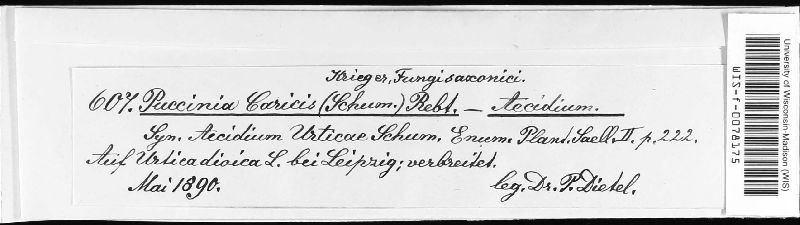 Krieger, Fungi saxonici.
607. Puccinia Caricis (Schum.) Rebt. — Aecidium.
Syn. Aecidium Urticae Schum. Enum. Plant. Saell. II. p. 222.
Auf Urtica dioica L. bei Leipzig; verbreitet.
Mai 1890. leg. Dr. P. Dietel.
University of Wisconsin-Madison (WIS)
WIS-f-0078175